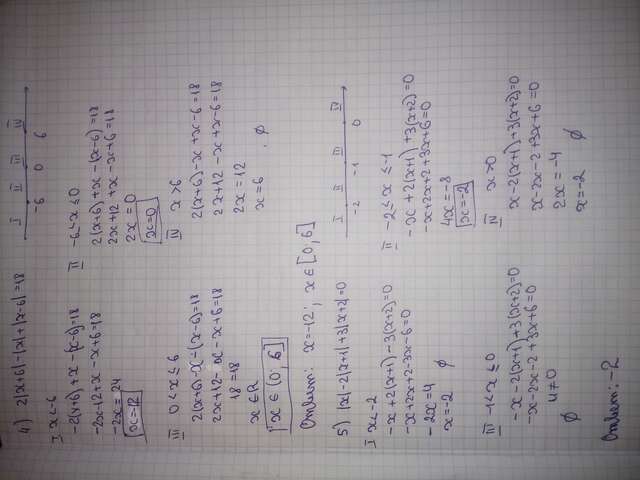 4) 2|x+6|-|x|+|x-6|=18
I II III IV
-6 0 6
I x<-6
-2(x+6)+x-(x-6)=18
-2x-12+x-x+6=18
-2x=24
x=-12
II -6≤x≤0
2(x+6)+x-(x-6)=18
2x+12+x-x+6=18
2x=0
x=0
III 0<x≤6
2(x+6)-x-(x-6)=18
2x+12-x-x+6=18
18=18
x∈R
x∈(0;6]
IV x>6
2(x+6)-x+x-6=18
2x+12-x+x-6=18
2x=12
x=6 ∅
Ответ: x=-12; x∈[0;6]
5) |x|-2|x+1|+3|x+2|=0
I II III IV
-2 -1 0
I x<-2
-x+2(x+1)-3(x+2)=0
-x+2x+2-3x-6=0
-2x=4
x=-2 ∅
II -2≤x≤-1
-x+2(x+1)+3(x+2)=0
-x+2x+2+3x+6=0
4x=-8
x=-2
III -1<x≤0
-x-2(x+1)+3(x+2)=0
-x-2x-2+3x+6=0
4≠0
∅
IV x>0
x-2(x+1)+3(x+2)=0
x-2x-2+3x+6=0
2x=-4
x=-2 ∅
Ответ: -2